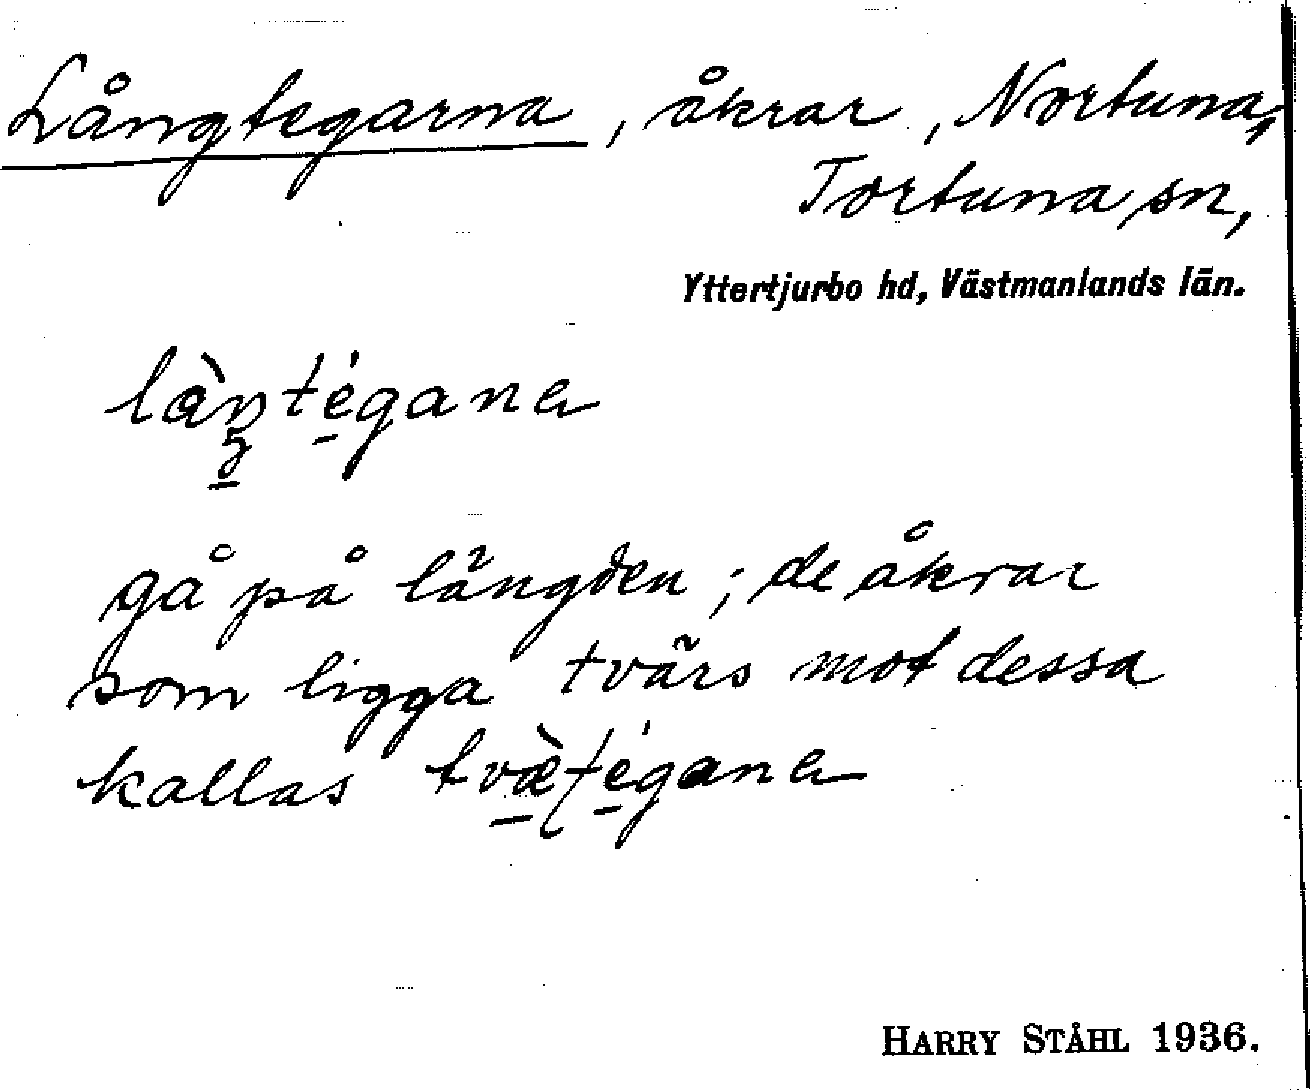 Långtegarna, åkrar, Nortuna,
Tortuna sn,
Yttertjurbo hd, Västmanlands län.
gå på längden; de åkrar
som ligga tvärs mot dessa
kallas
HARRY STÅHL 1936.